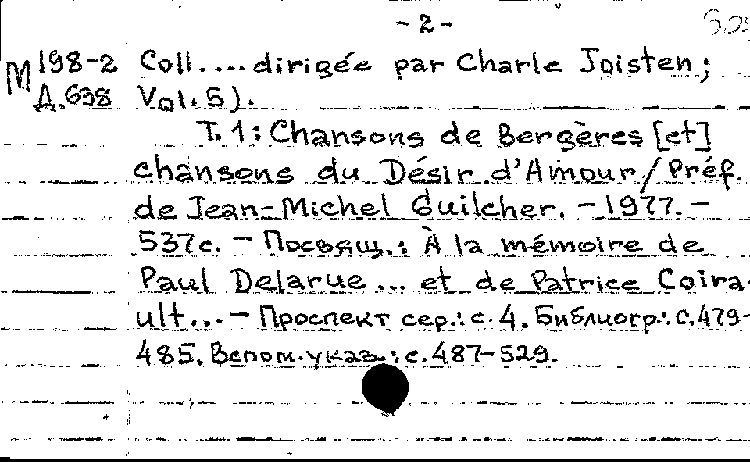 - 2 -
М 198-2 Coll. ... dirigée par Charle Joisten;
Д.698 Vol. 5).
T. 1: Chansons de Bergères [et]
chansons du Désir d'Amour / Préf.
de Jean-Michel Guilcher. - 1977. -
537с. - Посвящ.: À la mémoire de
Paul Delarue ... et de Patrice Coira-
ult... - Проспект сер.: с. 4. Библиогр.: с. 479-
485. Вспом. указ.: с. 487-529.